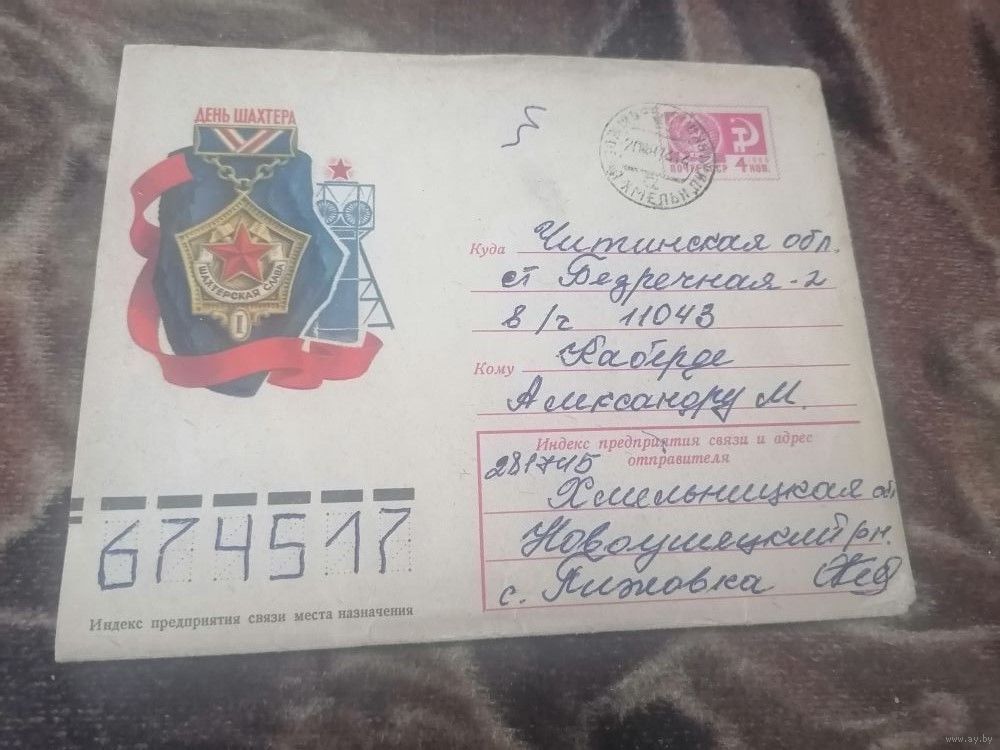 ДЕНЬ ШАХТЕРА
ШАХТЕРСКАЯ СЛАВА
I
ПОЧТА СССР 4 КОП.
1966
Куда Читинская обл.
ст Безречная-2
в/ч 11043
Кому
Александру М.
Индекс предприятия связи и адрес
отправителя
281745
Хмельницкая обл
Новоушицкий рн.
с. Пижовка
674517
Индекс предприятия связи места назначения
www.ay.by